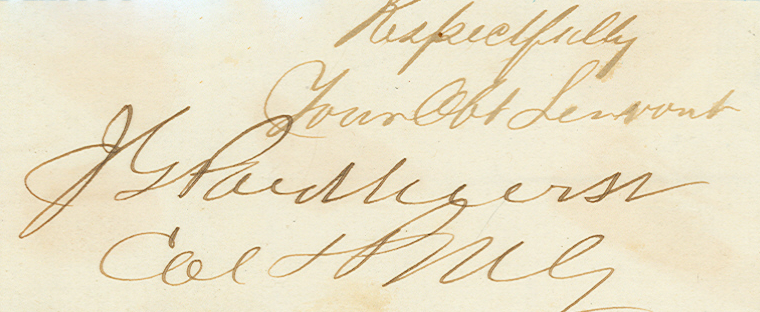 Respectfully
Your Obt Servant
J G Parkhurst
Col & P. M. G